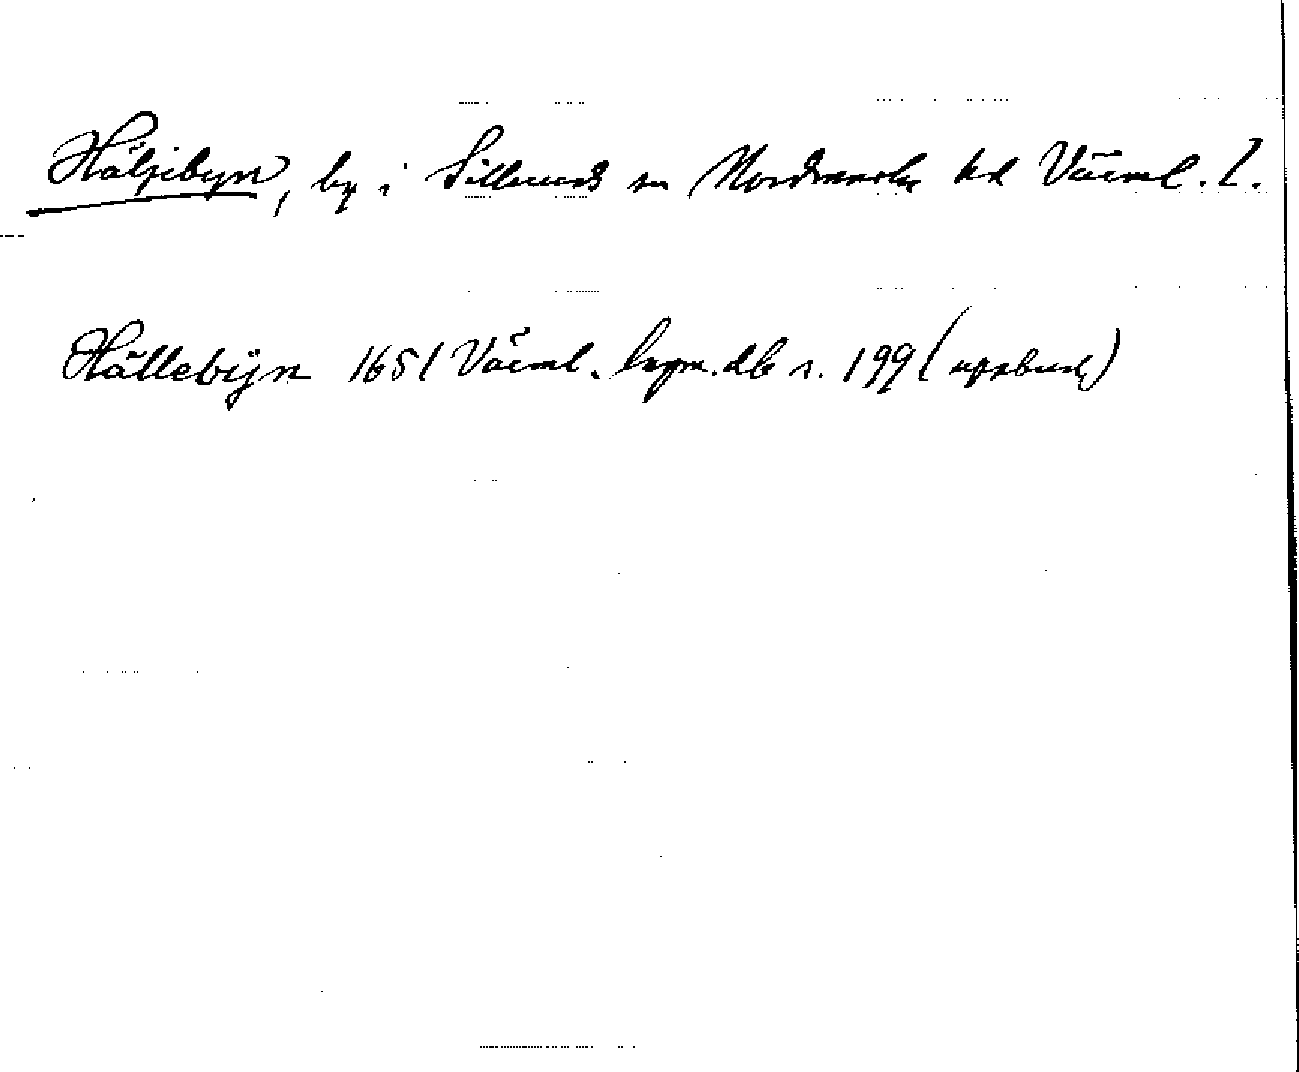 Häljebyn, by i Silleruds sn Nordmarks hd Värml. l.
Hällebÿn 1651 Värml. lupn. db s. 199 (uppbud)